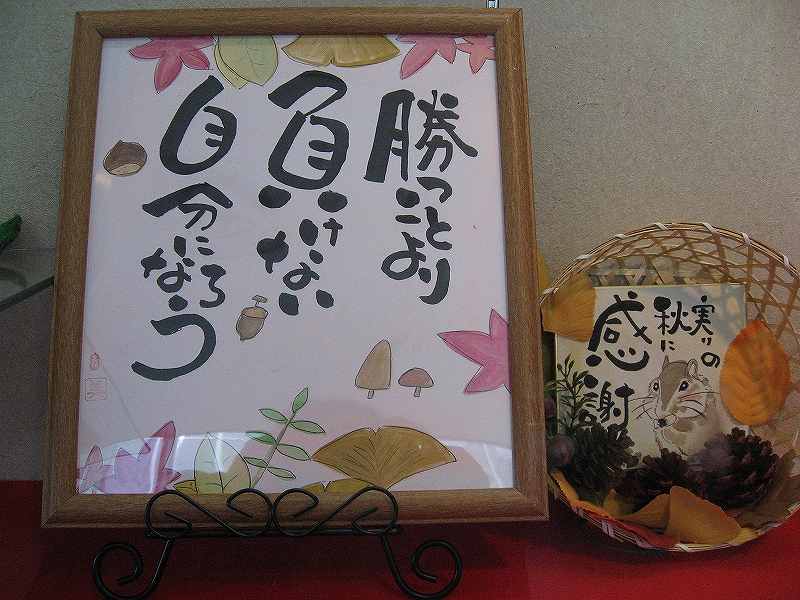 勝つことより
負けない
自分になろう
実りの
秋に
感謝